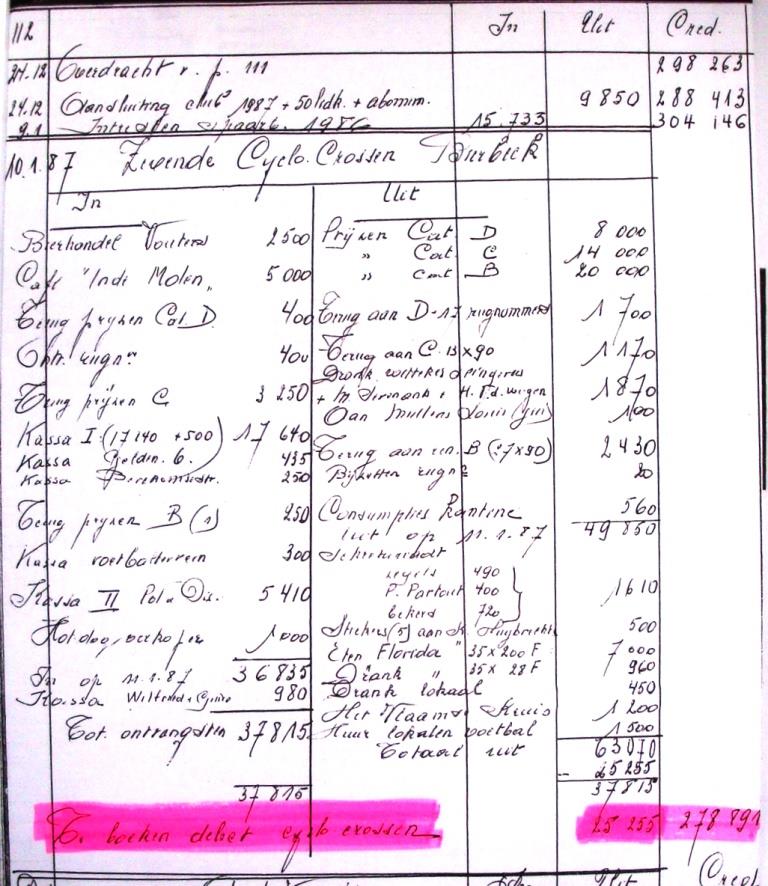 112 In Uit Cred.
24.12 Overdracht v. p. 111 298 263
24.12 Aansluiting club 1987 + 50 lidk. + abonm. 9850 288 413
9.1 Intresten spaarb. 1986 15.733 304 146
10.1.87 Zevende Cyclo-Crossen
In Uit
Bierhandel Wouters 2500 Prijzen Cat D 8 000
" Cat C 14 000
Café "In de Molen" 5 000 " cat B 20 000
Terug prijzen Cat. D 400 Terug aan D-17 rugnummers 1 700
Ontv. rugnrs 400 Terug aan C. 13 x 90 1 170
Drank
Terug prijzen C 3 250 + M. + H. F.d. 1 870
Aan Louis 100
Kassa I (17 140 + 500) 17 640
Kassa 6. 435 Terug aan ren. B (27 x 90) 2 430
Kassa 250 rugnrs 20
Terug prijzen B (1) 250 Consumpties kantine 560
Uit op 11.1.87 49 850
Kassa voetbalterrein 300
zegels 490
Kassa II 5 410 P. Partout 400 1610
bekers 720
Hotdogverkoper 1000 Stickers (5) aan Huybrechts 500
Eten Florida 35 x 200 F 7 000
In op 11.1.87 36 835 Drank " 35 x 28 F 960
Kassa 980 Drank lokaal 450
Het Vlaamse Kruis 1 200
Tot. ontvangsten 37 815 Huur lokalen voetbal 1 500
Totaal uit 63 070
- 25 255
37 815 37 815
Te boeken debet cyclo crossen 25 255 278 891
Uit Cred